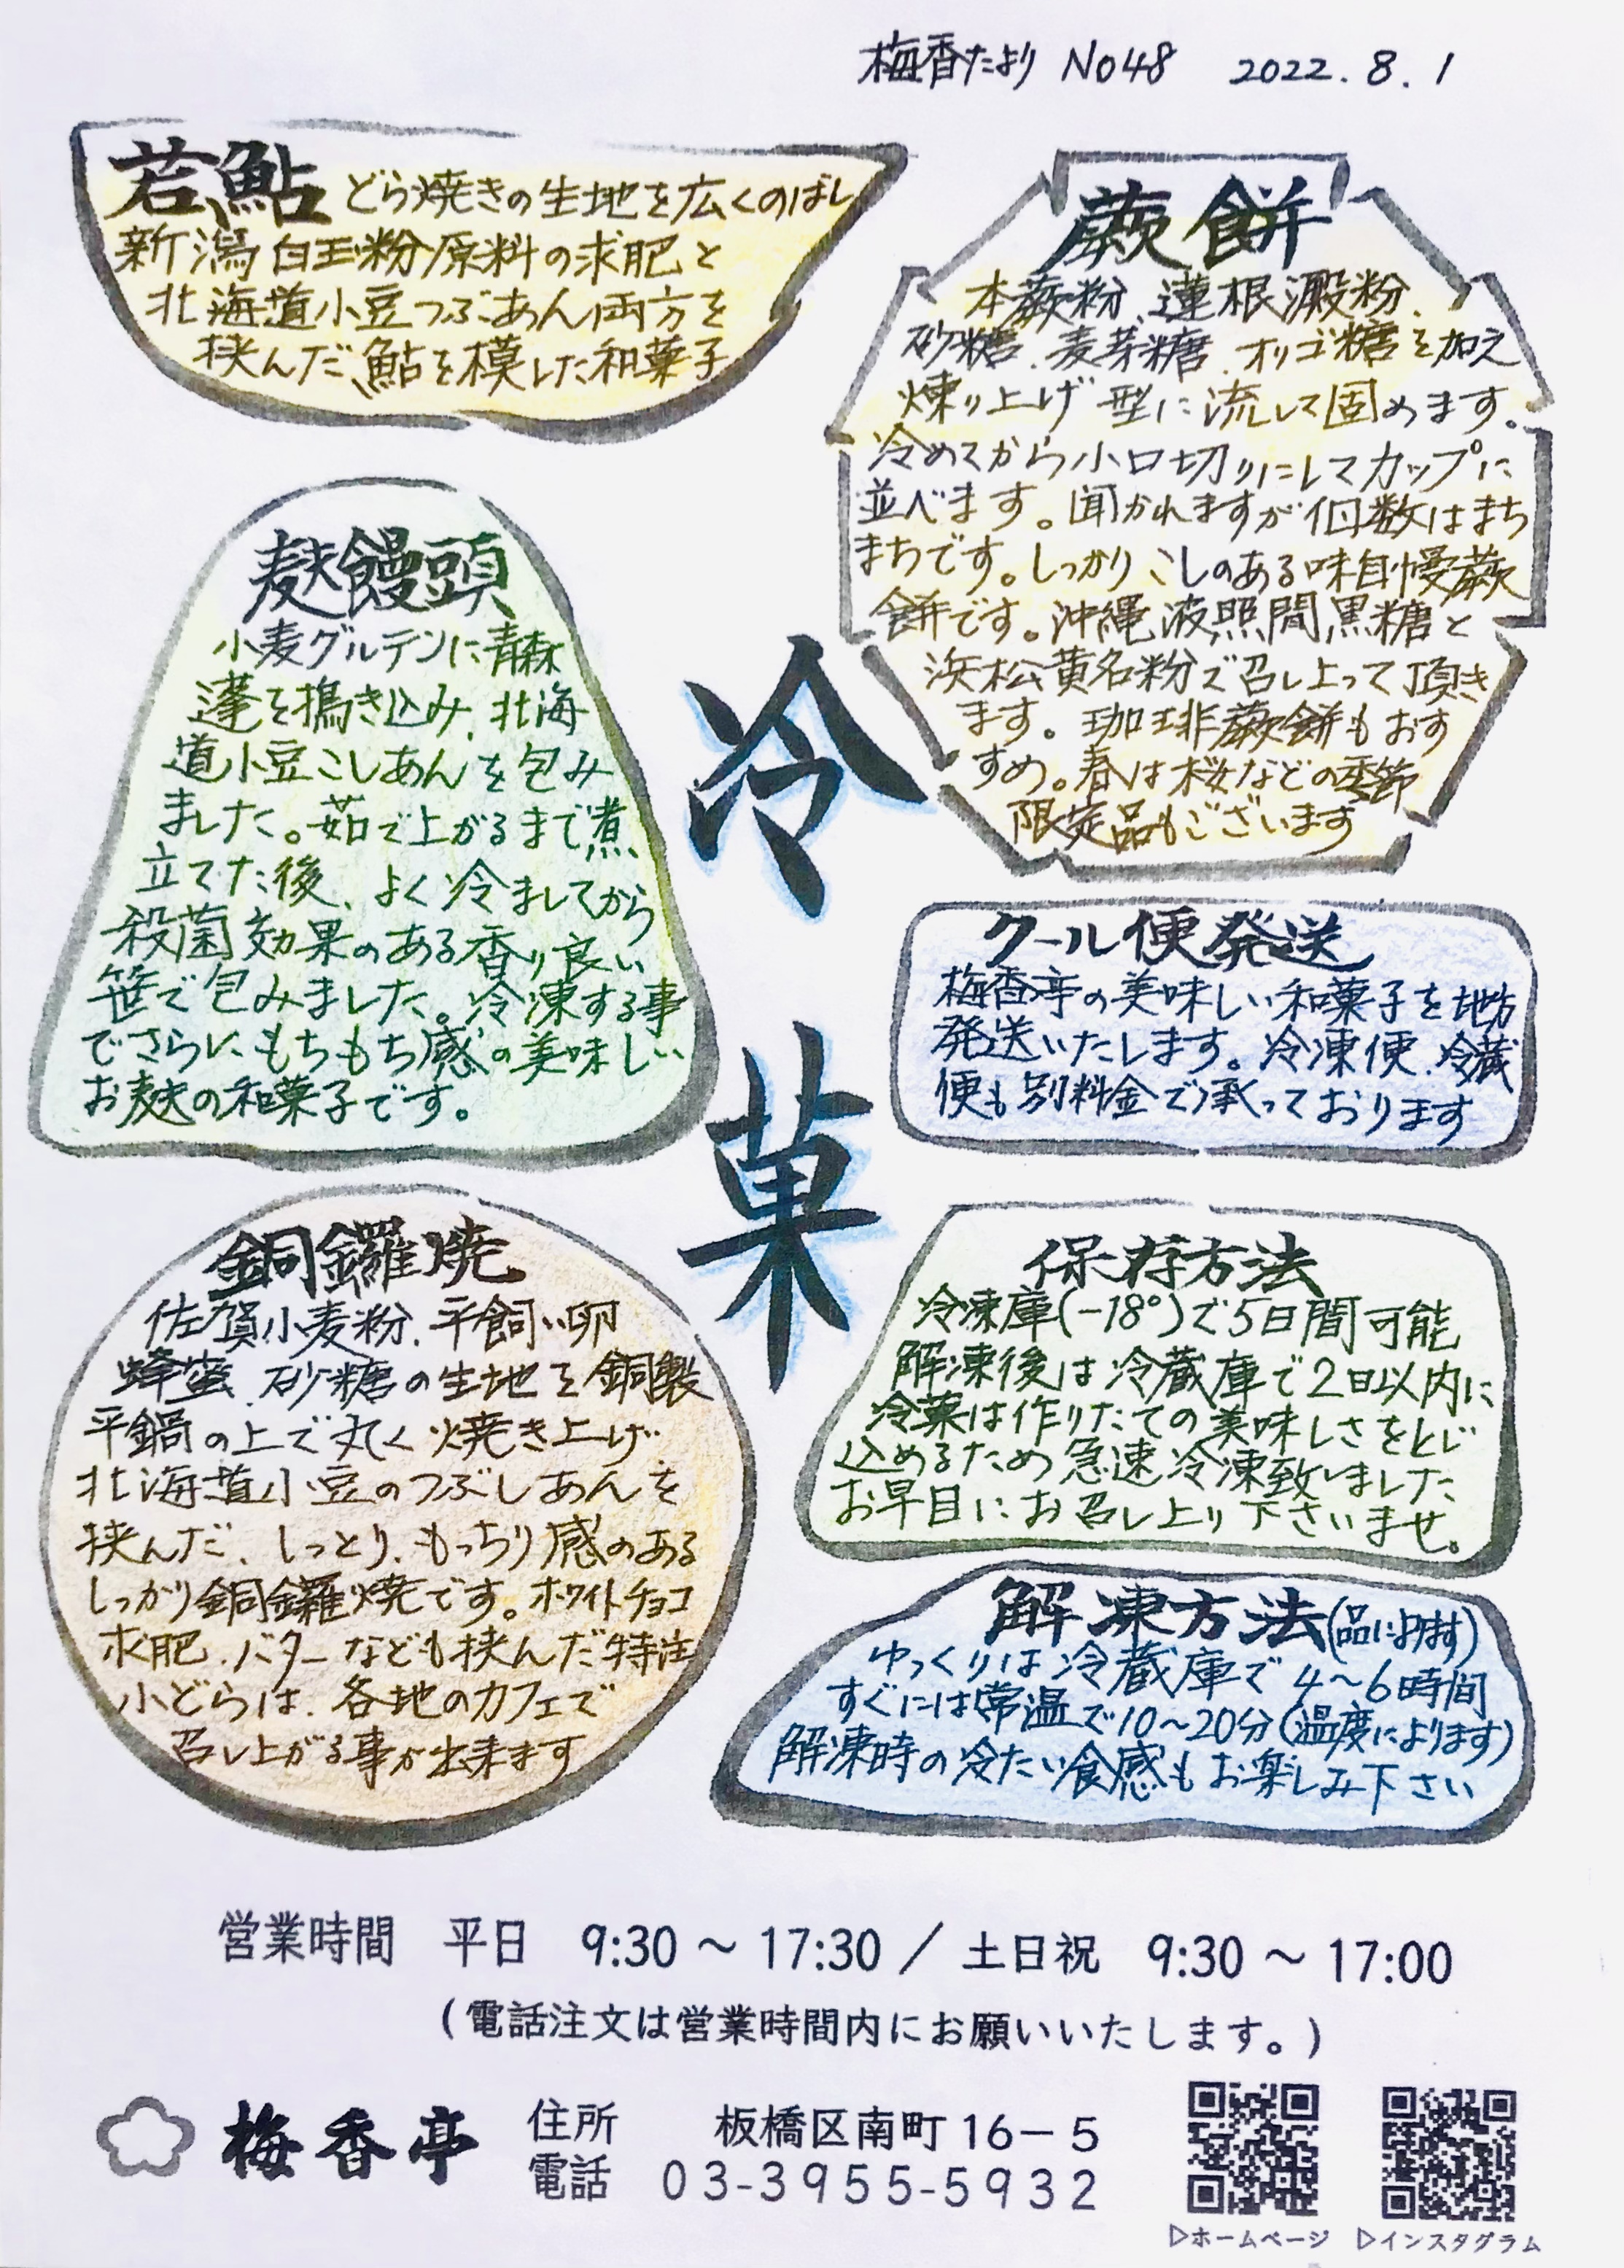 梅香だより No48 2022.8.1
若鮎 どら焼きの生地を広くのばし
新潟白玉粉原料の求肥と
北海道小豆つぶあん両方を
挟んだ鮎を模した和菓子
蕨餅
本蕨粉、蓮根澱粉、
砂糖、麦芽糖、オリゴ糖を加え
煉り上げ型に流して固めます。
冷めてから小口切りにしてカップに
並べます。聞かれますが個数はまち
まちです。しっかりこしのある味自慢蕨
餅です。沖縄波照間黒糖と
浜松黄名粉で召し上って頂き
ます。珈琲蕨餅もおす
すめ。春は桜などの季節
限定品もございます
麩饅頭
小麦グルテンに青森
蓬を搗き込み、北海
道小豆こしあんを包み
ました。茹で上がるまで煮
立てた後、よく冷ましてから
殺菌効果のある香り良い
笹で包みました。冷凍する事
でさらに、もちもち感の美味しい
お麩の和菓子です。
冷菓
クール便発送
梅香亭の美味しい和菓子を地方
発送いたします。冷凍便、冷蔵
便も別料金で承っております
銅鑼焼
佐賀小麦粉、平飼い卵
蜂蜜、砂糖の生地を銅製
平鍋の上で丸く焼き上げ
北海道小豆のつぶしあんを
挟んだ、しっとり、もっちり感のある
しっかり銅鑼焼です。ホワイトチョコ
求肥、バターなども挟んだ特注
小どらは、各地のカフェで
召し上がる事が出来ます
保存方法
冷凍庫(-18°)で5日間可能
解凍後は冷蔵庫で2日以内に
冷菓は作りたての美味しさをとじ
込めるため急速冷凍致しました
お早目にお召し上り下さいませ。
解凍方法(品によります)
ゆっくりは冷蔵庫で4～6時間
すぐには常温で10～20分(温度によります)
解凍時の冷たい食感もお楽しみ下さい
営業時間 平日 9:30 ～ 17:30 / 土日祝 9:30 ～ 17:00
(電話注文は営業時間内にお願いいたします。)
梅香亭
住所 板橋区南町16-5
電話 03-3955-5932
▷ホームページ ▷インスタグラム